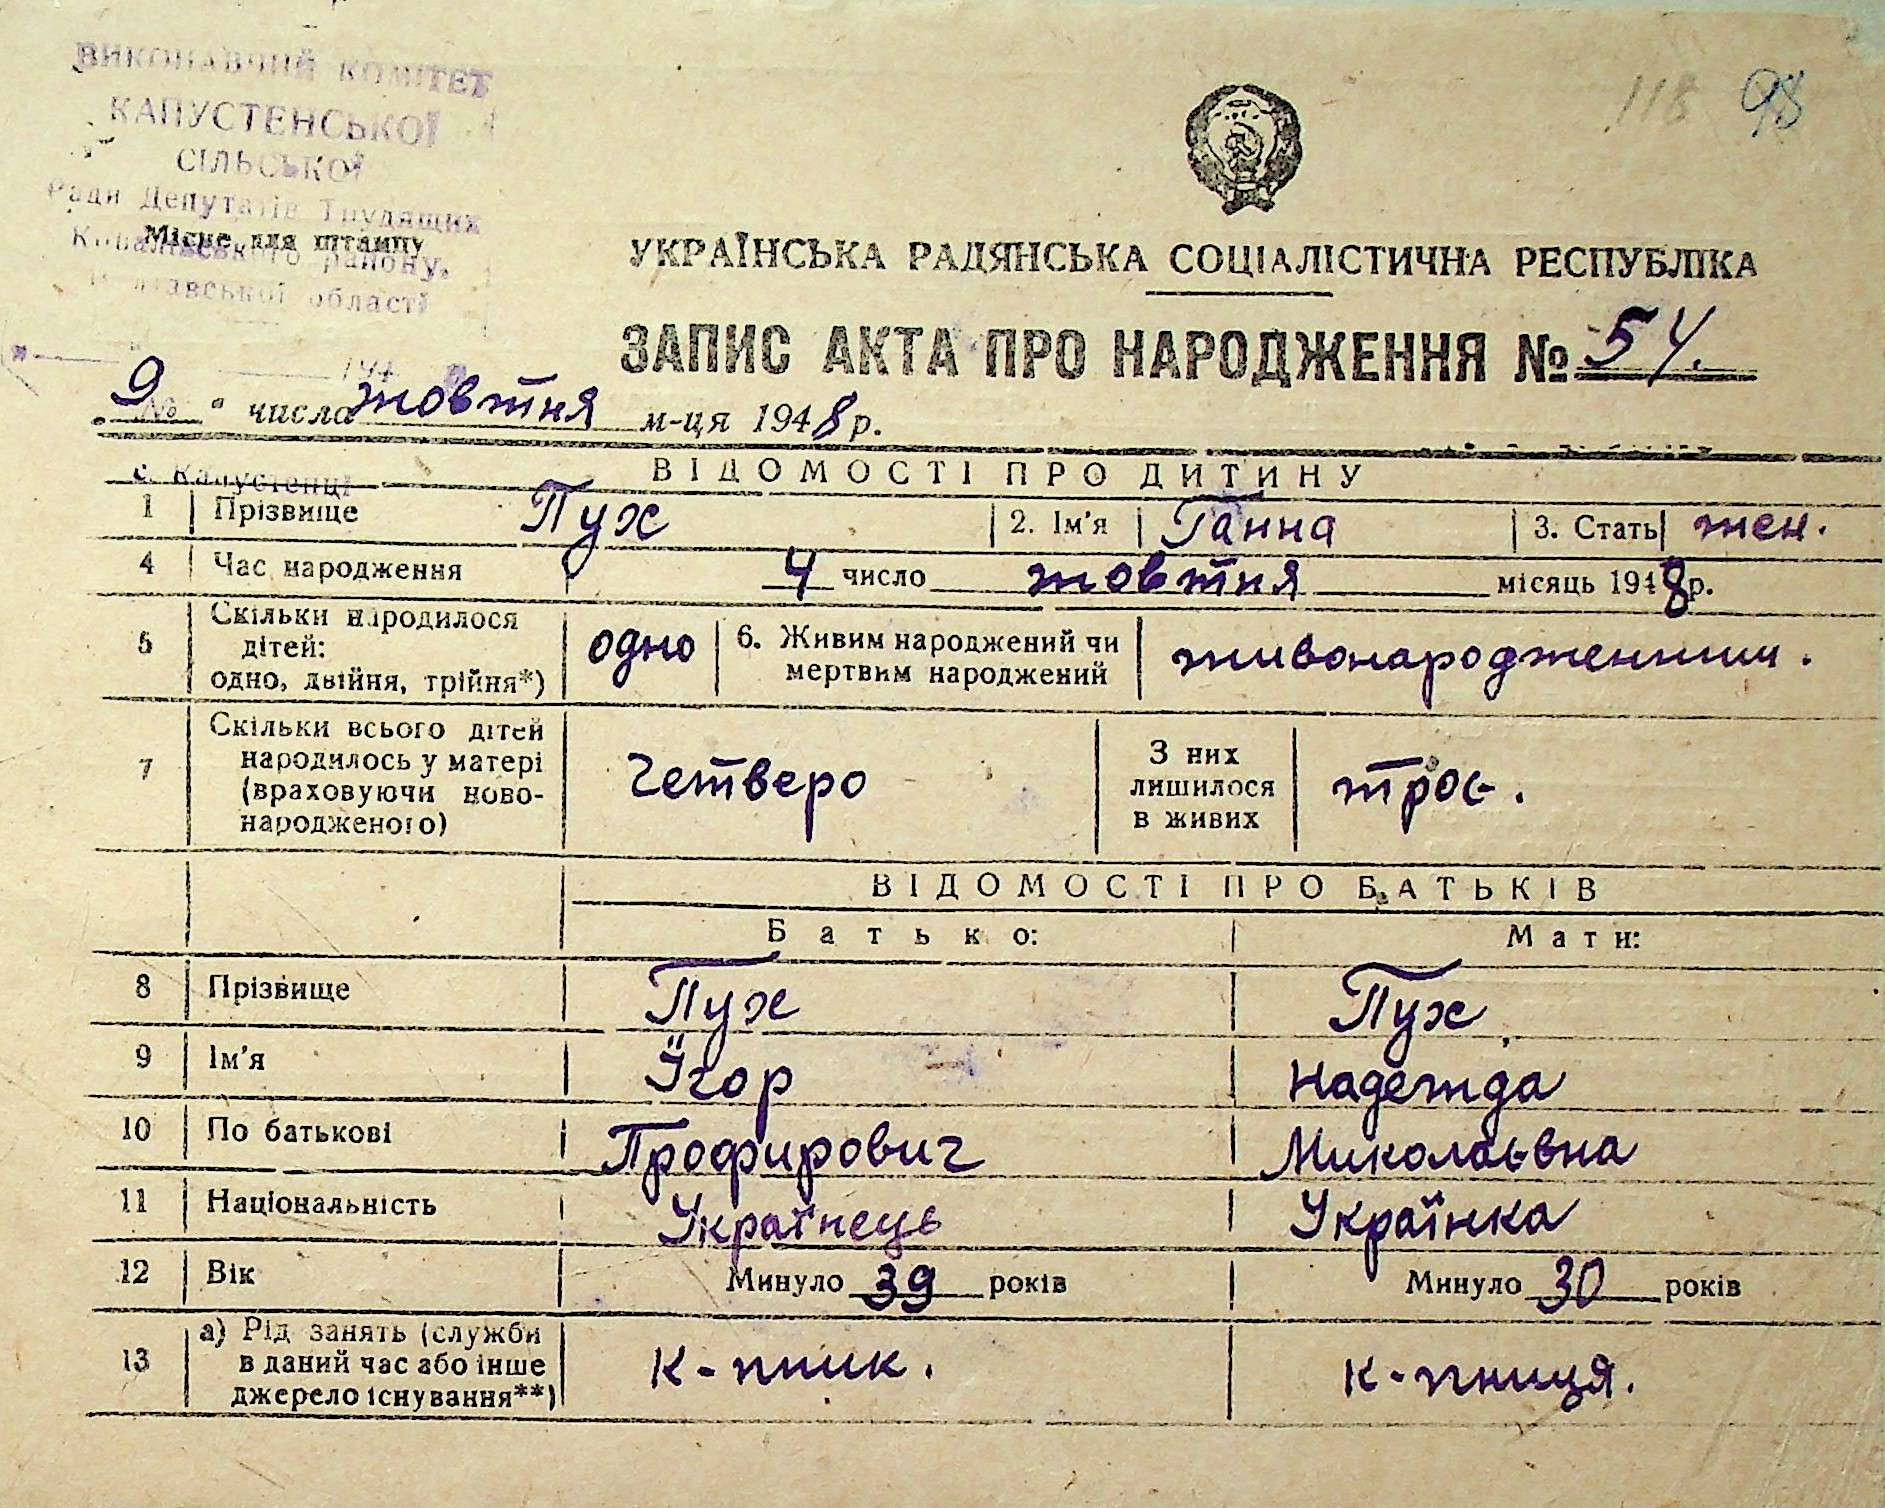 ВИКОНАВЧИЙ КОМІТЕТ
КАПУСТЕНСЬКОЇ
СІЛЬСЬКОЇ
Ради Депутатів Трудящих
Ковалівського району,
Полтавської області
Місце для штампу
118 98
УКРАЇНСЬКА РАДЯНСЬКА СОЦІАЛІСТИЧНА РЕСПУБЛІКА
ЗАПИС АКТА ПРО НАРОДЖЕННЯ № 54.
"—" — 194
№
9 " числа жовтня м-ця 1948 р.
с. Капустенці
ВІДОМОСТІ ПРО ДИТИНУ
1 Прізвище Пух 2. Ім'я Ганна 3. Стать жен.
4 Час народження 4 число жовтня місяць 1948 р.
5 Скільки народилося дітей: одно, двійня, трійня*) одно 6. Живим народжений чи мертвим народжений живонародженний.
7 Скільки всього дітей народилось у матері (враховуючи новонародженого) четверо З них лишилося в живих троє.
ВІДОМОСТІ ПРО БАТЬКІВ
Батько: Мати:
8 Прізвище Пух Пух
9 Ім'я Їгор Надежда
10 По батькові Профирович Миколаєвна
11 Національність Українець Українка
12 Вік Минуло 39 років Минуло 30 років
13 а) Рід занять (служби в даний час або інше джерело існування**) к-пник. к-пниця.